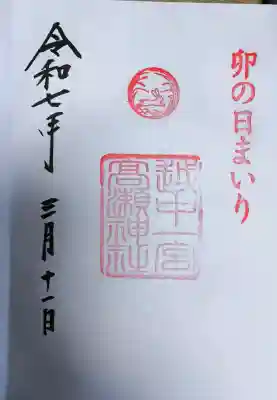 卯の日まいり
越中一宮
高瀬神社
令和七年
三月十一日